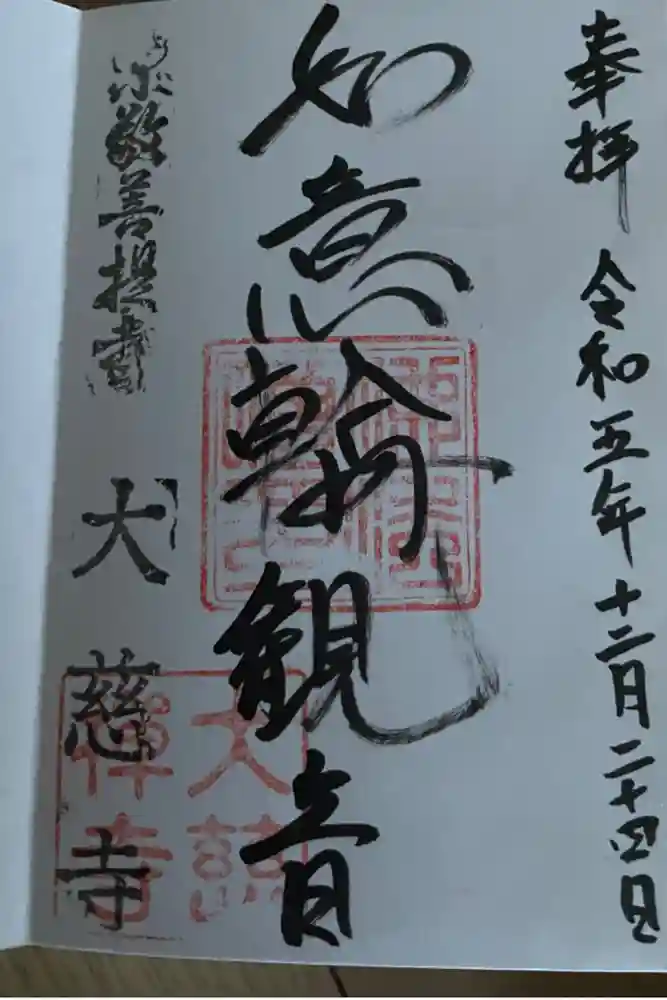 奉拝 令和五年十二月二十四日
如意輪観音
崇敬善提書
大慈寺
大慈
禅寺